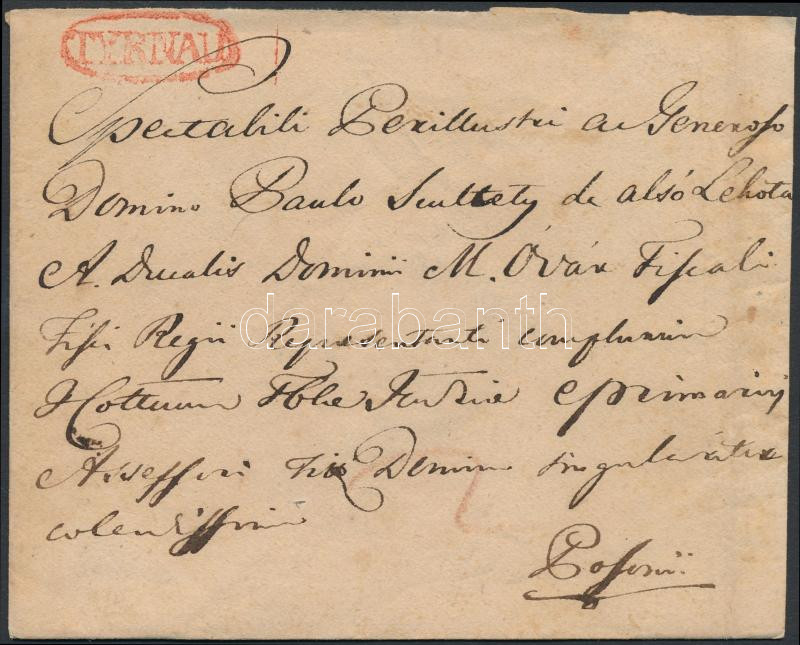 TYRNAU
Spectabili Perillustri ac Generoso
Domino Paulo Scultety de alsó Lehota
A. Ducalis Dominii M. Óvár Fiscali
Fisci Regii Repraesentanti complurium
Cottuum Tblae Judriae Primario
Assessori Dno Domino singulariter
colendissimo
Posonii
darabanth